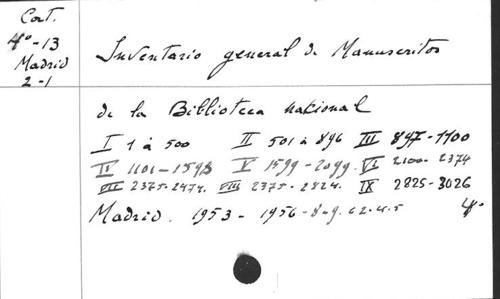 Cort.
4º-13
Madrid
2-1
Inventario general de Manuscritos
de la Biblioteca nacional
I 1 à 500 II 501 à 896 III 897-1100
IV 1101-1598 V 1599-2099. VI 2100-2374
VII 2375-2474. VIII 2375-2824. IX 2825-3026
Madrid. 1953-1956-8-9. 62-4-5 4º